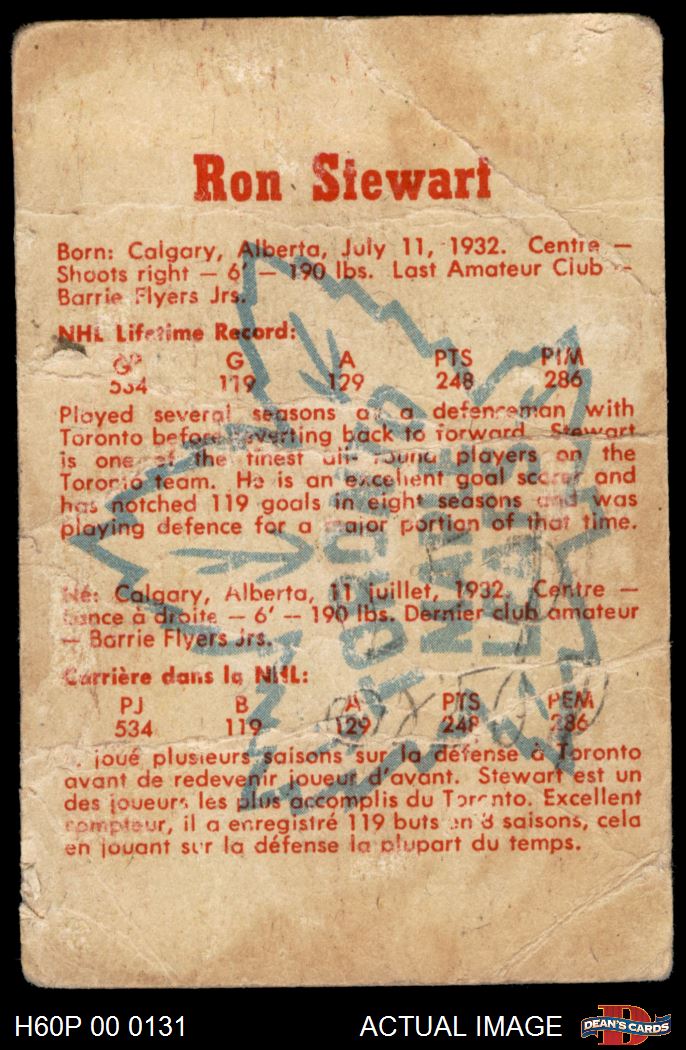 Ron Stewart
Born: Calgary, Alberta, July 11, 1932. Centre —
Shoots right — 6' — 190 lbs. Last Amateur Club —
Barrie Flyers Jrs.
NHL Lifetime Record:
GP G A PTS PIM
534 119 129 248 286
Played several seasons as a defenceman with
Toronto before reverting back to forward. Stewart
is one of the finest all-round players on the
Toronto team. He is an excellent goal scorer and
has notched 119 goals in eight seasons and was
playing defence for a major portion of that time.
Né: Calgary, Alberta, 11 juillet, 1932. Centre —
Lance à droite — 6' — 190 lbs. Dernier club amateur
— Barrie Flyers Jrs.
Carrière dans la NHL:
PJ B A PTS PEM
534 119 129 248 286
joué plusieurs saisons sur la défense à Toronto
avant de redevenir joueur d'avant. Stewart est un
des joueurs les plus accomplis du Toronto. Excellent
compteur, il a enregistré 119 buts en 8 saisons, cela
en jouant sur la défense la plupart du temps.
TORONTO
MAPLE
LEAFS
H60P 00 0131 ACTUAL IMAGE DEAN'S CARDS